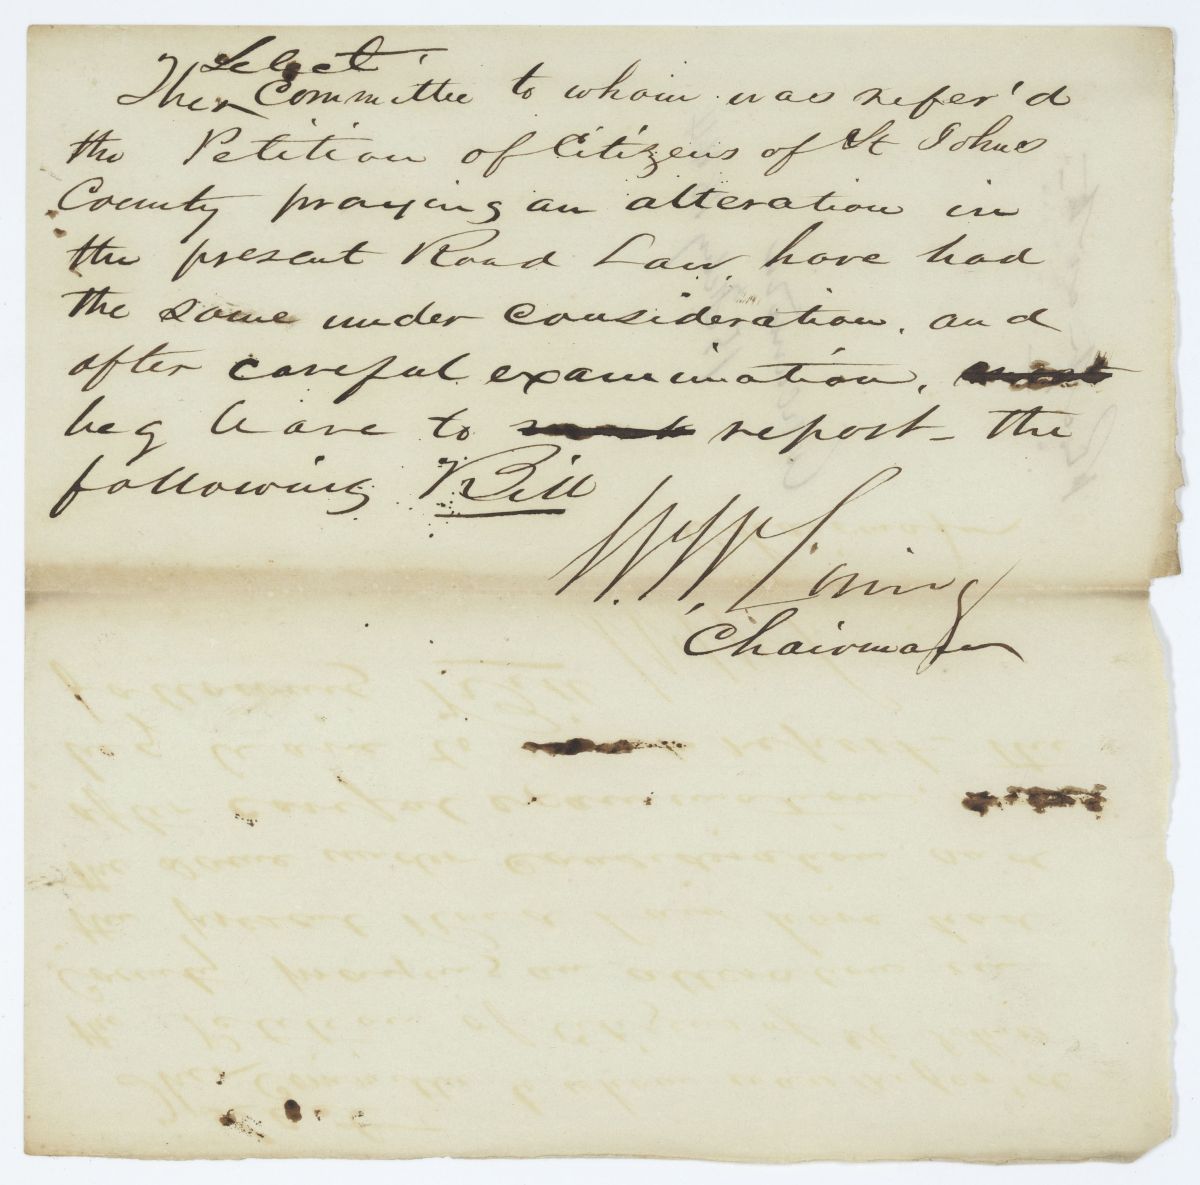 The Select Committee to whom was refer'd
the Petition of Citizens of St Johns
County praying an alteration in
the present Road Law, have had
the same under consideration, and
after careful examination,
beg leave to report - the
following Bill
W. W. Loring
Chairman